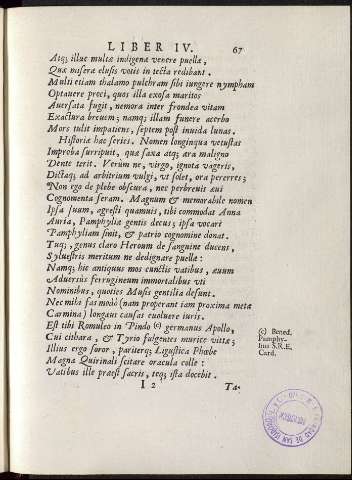 LIBER IV. 67
Atq; illuc multæ indigenæ venere puellæ,
Quæ miseræ elusis votis in tecta redibant.
Multi etiam thalamo pulchram sibi iungere nympham
Optauere proci, quos illa exosa maritos
Auersata fugit, nemora inter frondea vitam
Exactura breuem; namq; illam funere acerbo
Mors tulit impatiens, septem post inuida lunas.
Historiæ hæc series. Nomen longinqua vetustas
Improba surripuit, quæ saxa atq; æra maligno
Dente terit. Verùm ne, virgo, ignota vageris,
Dictaq; ad arbitrium vulgi, vt solet, ora pererres;
Non ego de plebe obscura, nec perbreui aui
Cognomenta feram. Magnum & memorabile nomen
Ipsa suum, agresti quamuis, tibi commodat Anna
Auria, Pamphyliæ gentis decus; ipsa vocari
Pamphyliam sinit, & patrio cognomine donat.
Tuq;, genus claro Heroum de sanguine ducens,
Syluestris meritum ne dedignare puellæ:
Namq; hic antiquus mos cunctis vatibus, æuum
Aduersus ferrugineum immortalibus vti
Nominibus, quoties Musis gentilia desunt.
Nec mihi fas modò (nam properant iam proxima metæ
Carmina) longæui causas euoluere iuris.
Est tibi Romuleo in Pindo (c) germanus Apollo,
Cui cithara, & Tyrio fulgentes murice vittæ;
Illius ergo soror, pariterq; Ligustica Phœbe
Magna Quirinali scitare oracula colle:
Vatibus ille præest sacris, teq; ista docebit.
(c) Bened.
Pamphy-
lius S.R.E.
Card.
I 2 Ta-